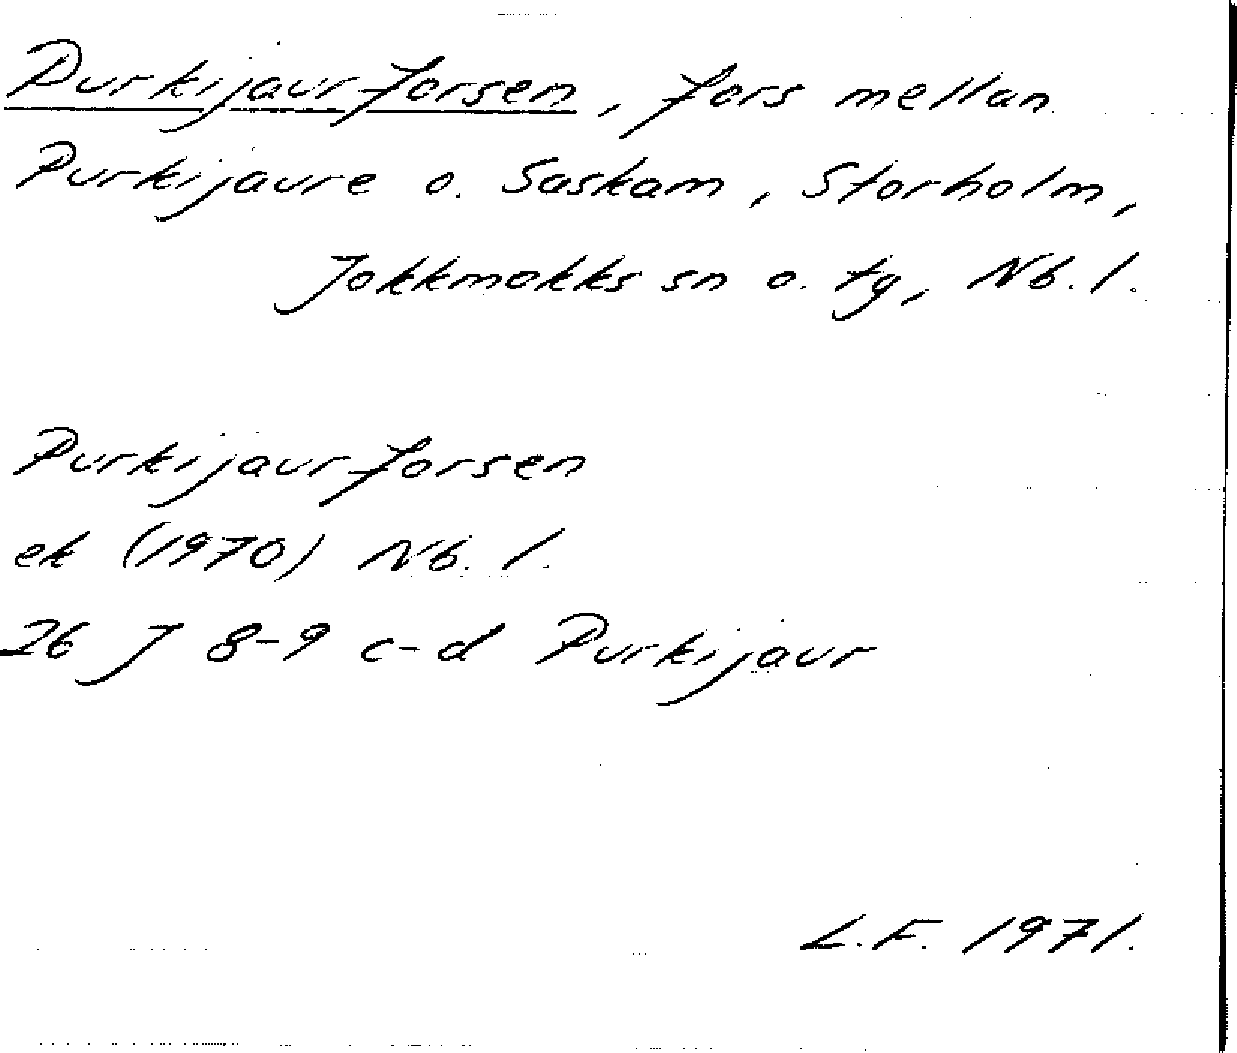 Purkijaurforsen, fors mellan
Purkijaure o. Saskam, Storholm,
Jokkmokks sn o. tg, Nb. l.
Purkijaurforsen
ek (1970) Nb. l.
26 J 8-9 c-d Purkijaur
L.F. 1971.